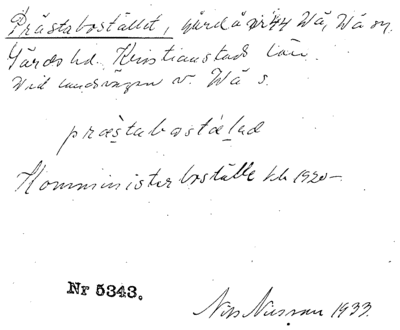 Prästabostället, gård å nr 44 Wä, Wä sn.
Gärds hd. Kristianstads län.
Vid landsvägen v. Wä s.
præstabostælad
Komministerboställe till 1920-
Nr 5343.
Nils Nilsson 1933.